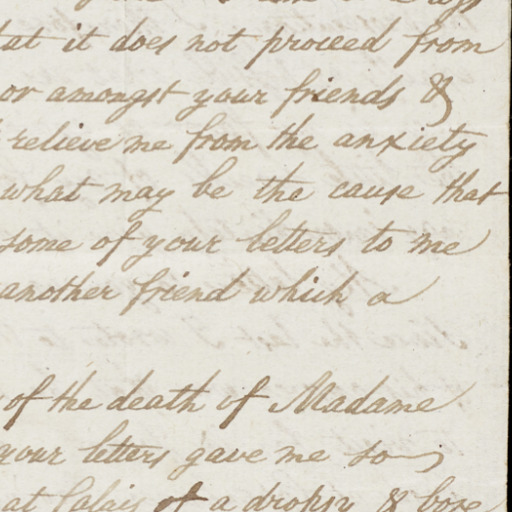 tat it does not proceed from
or amongst your friends &
relieve me from the anxiety
what may be the cause that
some of your letters to me
another friend which a
of the death of Madame
your letters gave me so
at Calais of a dropsy & bore